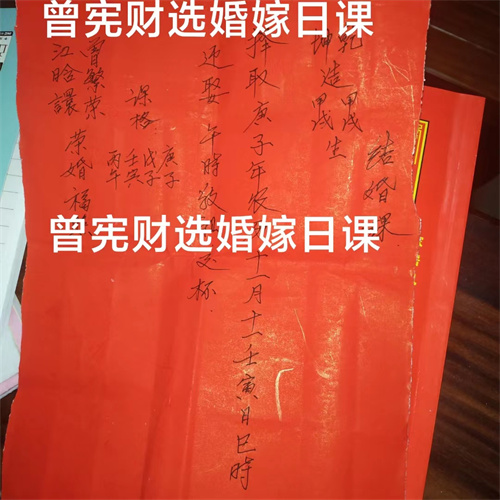 曾宪财选婚嫁日课
结婚课
乾造甲戌生
坤造甲戌
择取庚子年农历十一月十一壬寅日巳時
迎娶午時敬 交杯
课格
庚子
戊子
壬寅
丙午
曾繁荣
江晗讓
荣婚福
曾宪财选婚嫁日课